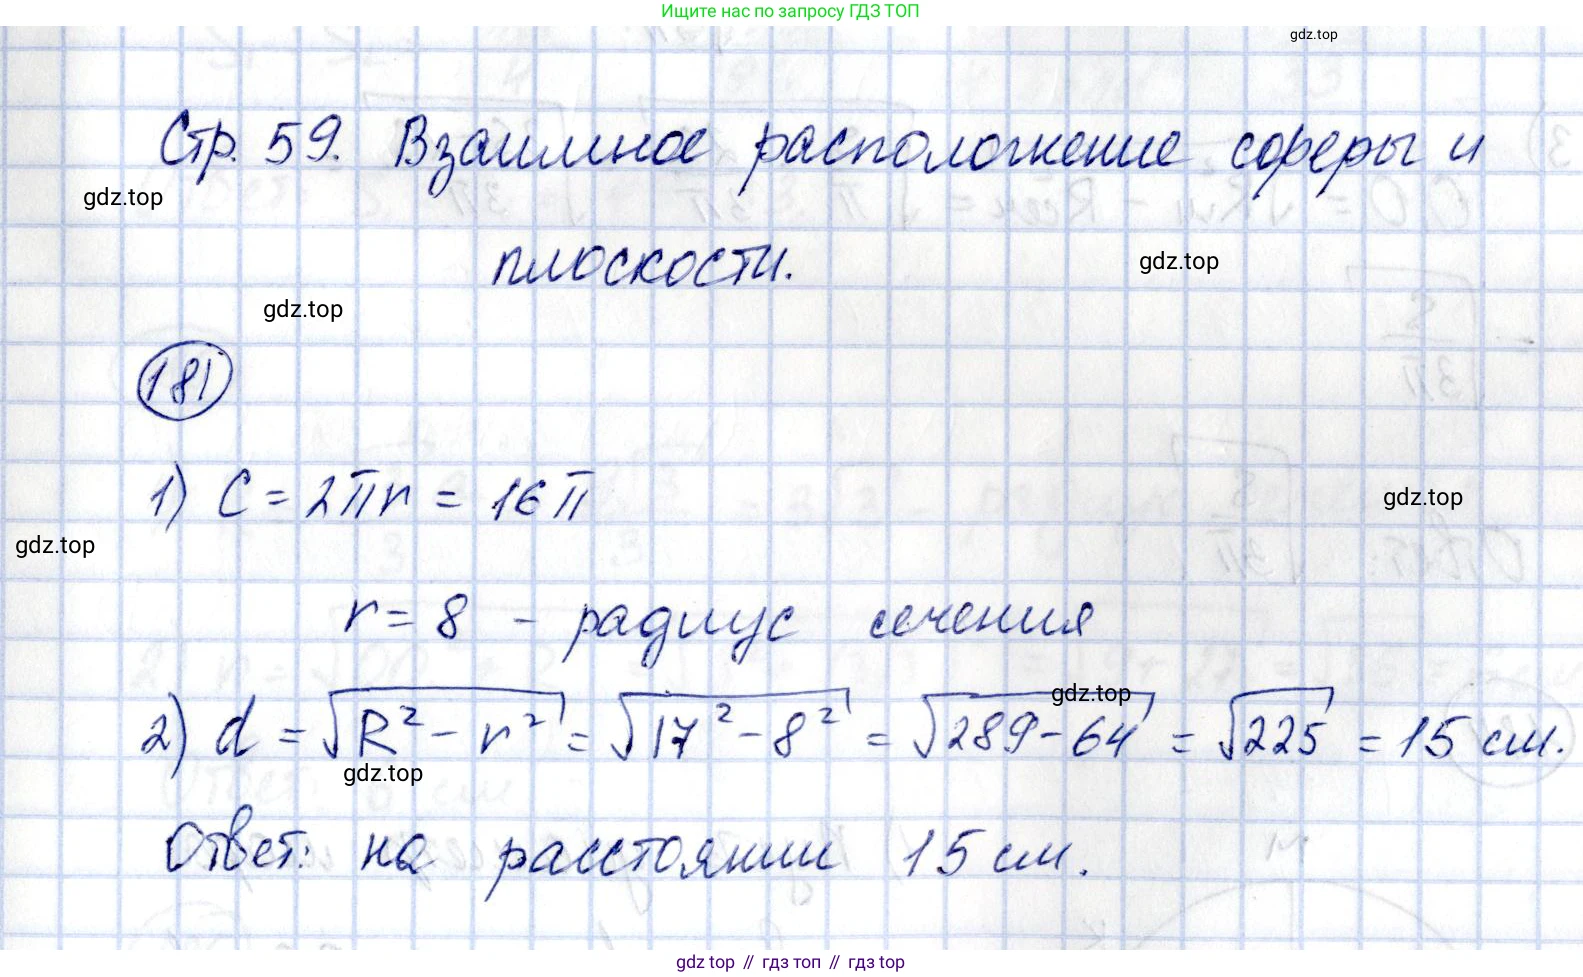 Ищите нас по запросу ГДЗ ТОП
gdz.top
Стр. 59. Взаимное расположение сферы и
gdz.top
плоскости.
gdz.top
gdz.top
181
1) C = 2πr = 16π
gdz.top
gdz.top
r = 8 - радиус сечения
gdz.top
2) d = √(R² - r²) = √(17² - 8²) = √(289 - 64) = √225 = 15 см.
gdz.top
Ответ: на расстоянии 15 см.
gdz top // гдз топ // гдз top